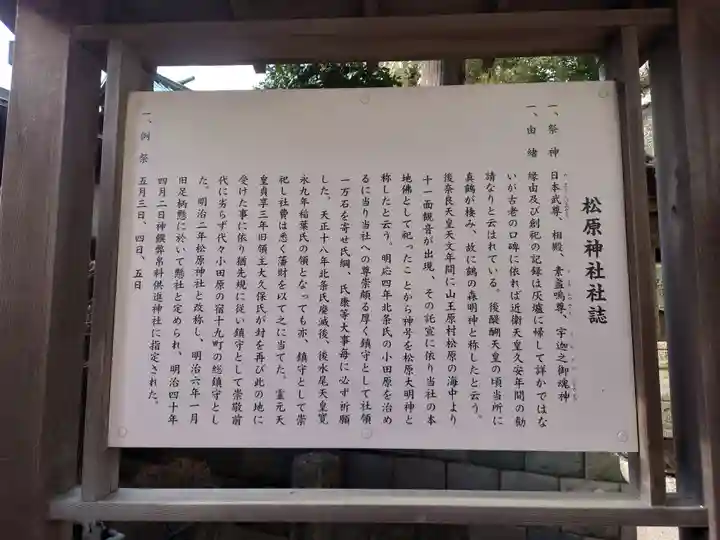 松原神社社誌
一、祭神　日本武尊、相殿、素盞嗚尊、宇迦之御魂神
一、由緒　縁由及び創祀の記録は灰燼に帰して詳かではな
いが古老の口碑に依れば近衛天皇久安年間の勧
請なりと云はれている。後醍醐天皇の頃当所に
真鶴が棲み、故に鶴の森明神と称したと云う。
後奈良天皇天文年間に山王原村松原の海中より
十一面観音が出現、その託宣に依り当社の本
地佛として祀ったことから神号を松原大明神と
称したと云う。明応四年北条氏の小田原を治め
るに当り当社への尊崇頗る厚く鎮守として社領
一万石を寄せ氏綱、氏康等大事毎に必ず祈願
した。天正十八年北条氏廃滅後、後水尾天皇寛
永九年稲葉氏の領となっても亦、鎮守として崇
祀し社費は悉く藩財を以て之に当てた。霊元天
皇貞享三年旧領主大久保氏が封を再び此の地に
受けた事に依り猶先規に従い鎮守として崇敬前
代に劣らず代々小田原の宿十九町の総鎮守とし
た。明治二年松原神社と改称し、明治六年一月
旧足柄県に於いて県社と定められ、明治四十年
四月二日神饌幣帛料供進神社に指定された。
一、例祭　五月三日、四日、五日